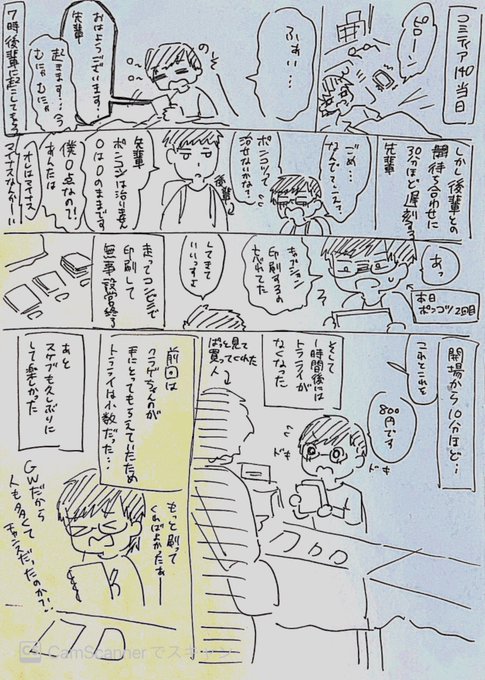 コミティア140当日
ピローン
ふぁい…
おはようございます。
先輩
起きます…ぅ
むにゃむにゃ
7時後輩に起こしてもらう
しかし後輩との
待ち合わせに
30分ほど遅刻する
先輩
ごめ…
なんて…?え?
ポンコツって
治せないかな?
後輩
先輩
ポンコツは治りません
0は0のままです
僕0点なの!?
あんたは
マイナスなんか〜い
あっ
本日
ポンコツ2回目
印刷するの
忘れてた
してきて
いいっすよ
走ってコンビニで
印刷して
無事設営終了
開場から10分ほど…
これとこれを
800円です
ドキ
ドキ
そして
1時間後には
トラフライが
なくなった
ぱっと見て
買ってくれた
人
前回は
クラゲちゃんのが
手にとってもらえていたため
トラフライは少数だった…
もっと刷って
くればよかったぁー
あと
スケブも久しぶりに
して楽しかった
GWだから
人も多くて
チャンスだったのか?!
CamScannerでスキャン